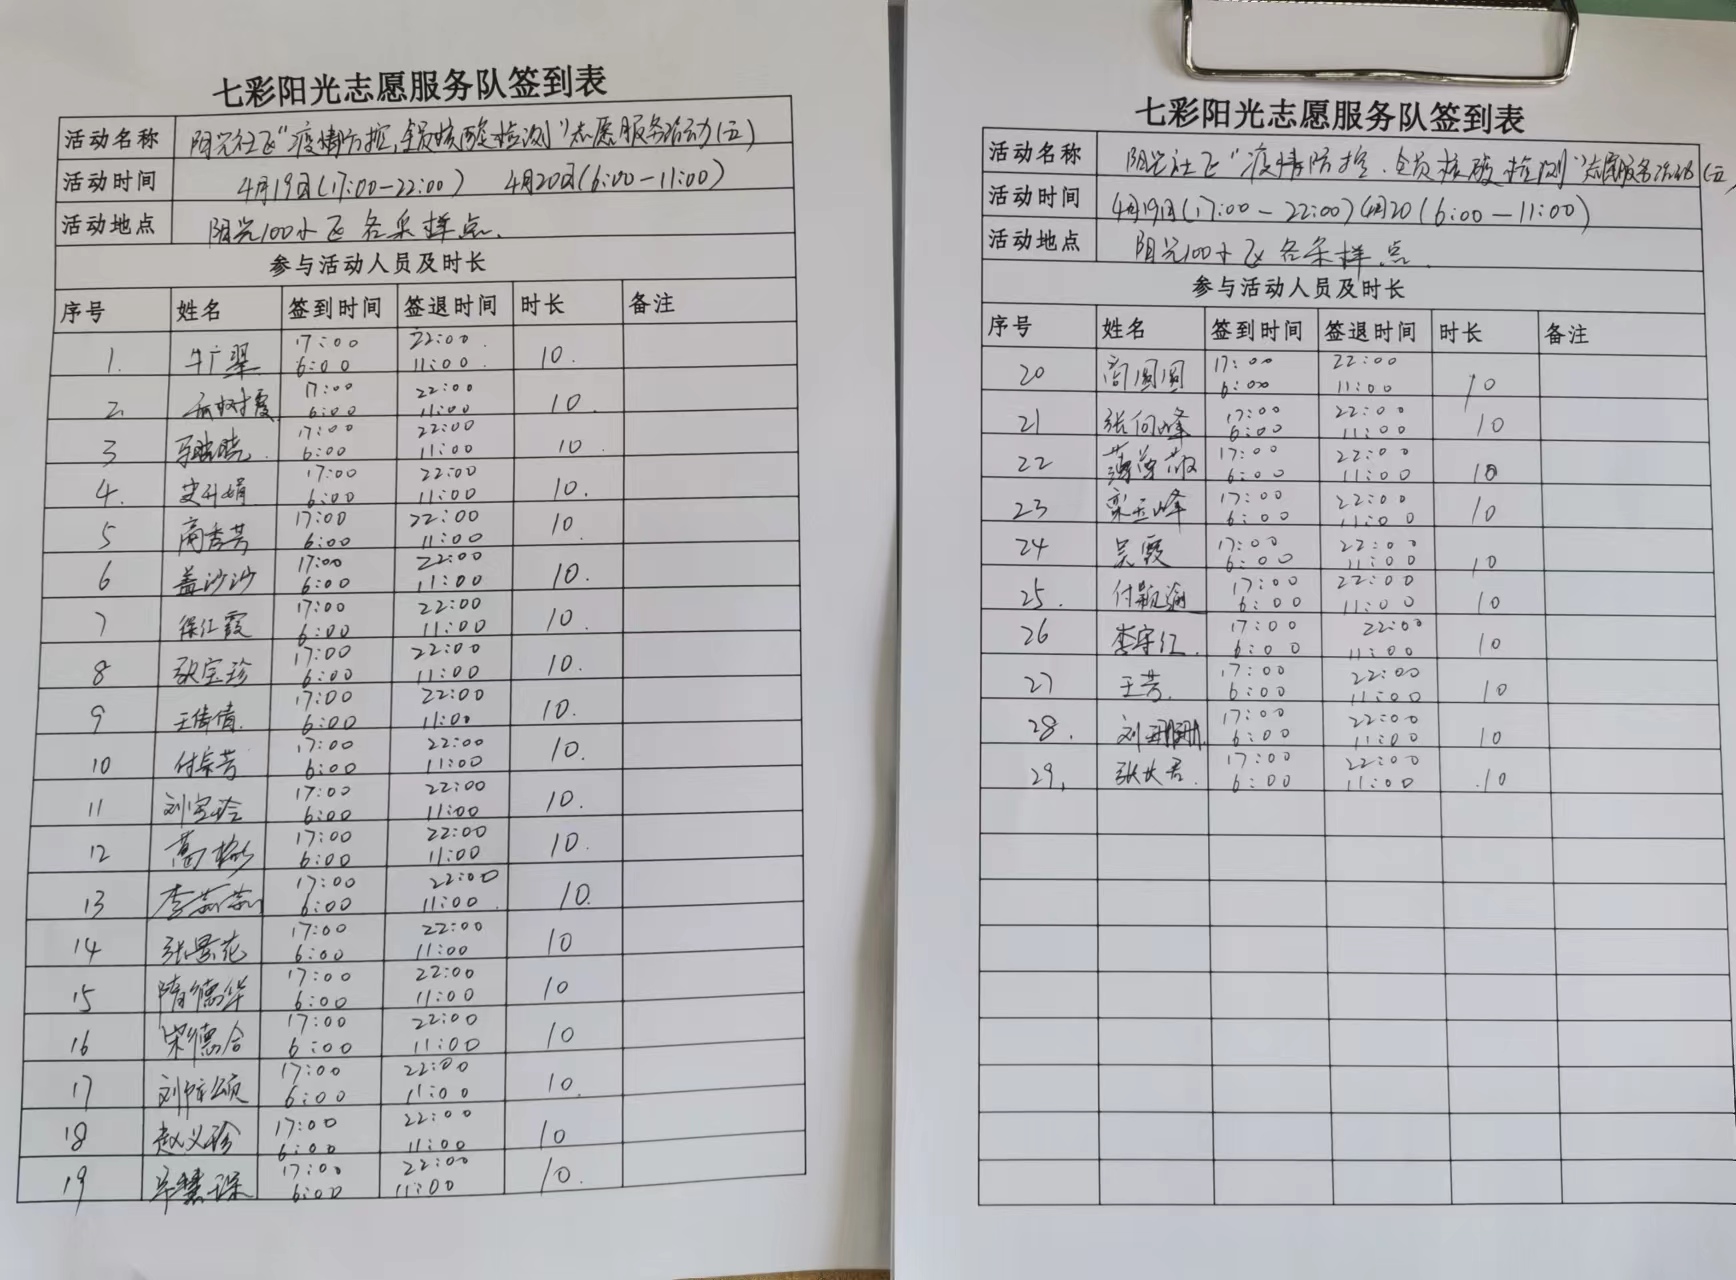 七彩阳光志愿服务队签到表
活动名称 阳光社区“疫情防控,全员核酸检测”志愿服务活动(五)
活动时间 4月19日(17:00-22:00) 4月20日(6:00-11:00)
活动地点 阳光100小区各采样点.
参与活动人员及时长
序号 姓名 签到时间 签退时间 时长 备注
17:00 22:00
1. 牛广翠 6:00 11:00 10.
17:00 22:00
2. 树霞 6:00 11:00 10.
17:00 22:00
3 晓 6:00 11:00 10
17:00 22:00
4. 史升娟 6:00 11:00 10.
17:00 22:00
5 商秀芳 6:00 11:00 10
17:00 22:00
6 盖沙沙 6:00 11:00 10.
17:00 22:00
7 徐红霞 6:00 11:00 10.
17:00 22:00
8 张宝珍 6:00 11:00 10.
17:00 22:00
9 王倩倩. 6:00 11:00 10.
17:00 22:00
10 付荣芳 6:00 11:00 10.
17:00 22:00
11 刘宝玲 6:00 11:00 10.
17:00 22:00
12 6:00 11:00 10.
17:00 22:00
13 李蕊蕊 6:00 11:00 10.
17:00 22:00
14 张景花 6:00 11:00 10
17:00 22:00
15 隋德华 6:00 11:00 10
17:00 22:00
16 宋德合 6:00 11:00 10
17:00 22:00
17 刘 颂 6:00 11:00 10.
17:00 22:00
18 赵义珍 6:00 11:00 10
17:00 22:00
19 慧琛 6:00 11:00 10.
七彩阳光志愿服务队签到表
活动名称 阳光社区“疫情防控.全员核酸检测”志愿服务活动(五)
活动时间 4月19日(17:00-22:00)4月20(6:00-11:00)
活动地点 阳光100小区各采样点.
参与活动人员及时长
序号 姓名 签到时间 签退时间 时长 备注
17:00 22:00
20 商圆圆 6:00 11:00 10
17:00 22:00
21 张向峰 6:00 11:00 10
17:00 22:00
22 6:00 11:00 10
17:00 22:00
23 栾玉峰 6:00 11:00 10
17:00 22:00
24 吴霞 6:00 11:00 10
17:00 22:00
25. 付 6:00 11:00 10
17:00 22:00
26 李守仁 6:00 11:00 10
17:00 22:00
27 王芳. 6:00 11:00 10
17:00 22:00
28. 刘珊珊 6:00 11:00 10
17:00 22:00
29. 张长君. 6:00 11:00 10